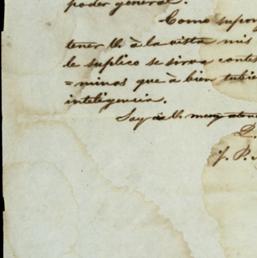 poder general.
Como supon
tener Vd à la vista mis
le suplico se sirva contes
=minos que à bien tubie
inteligencia.
Soy de Vd. muy aten
P.